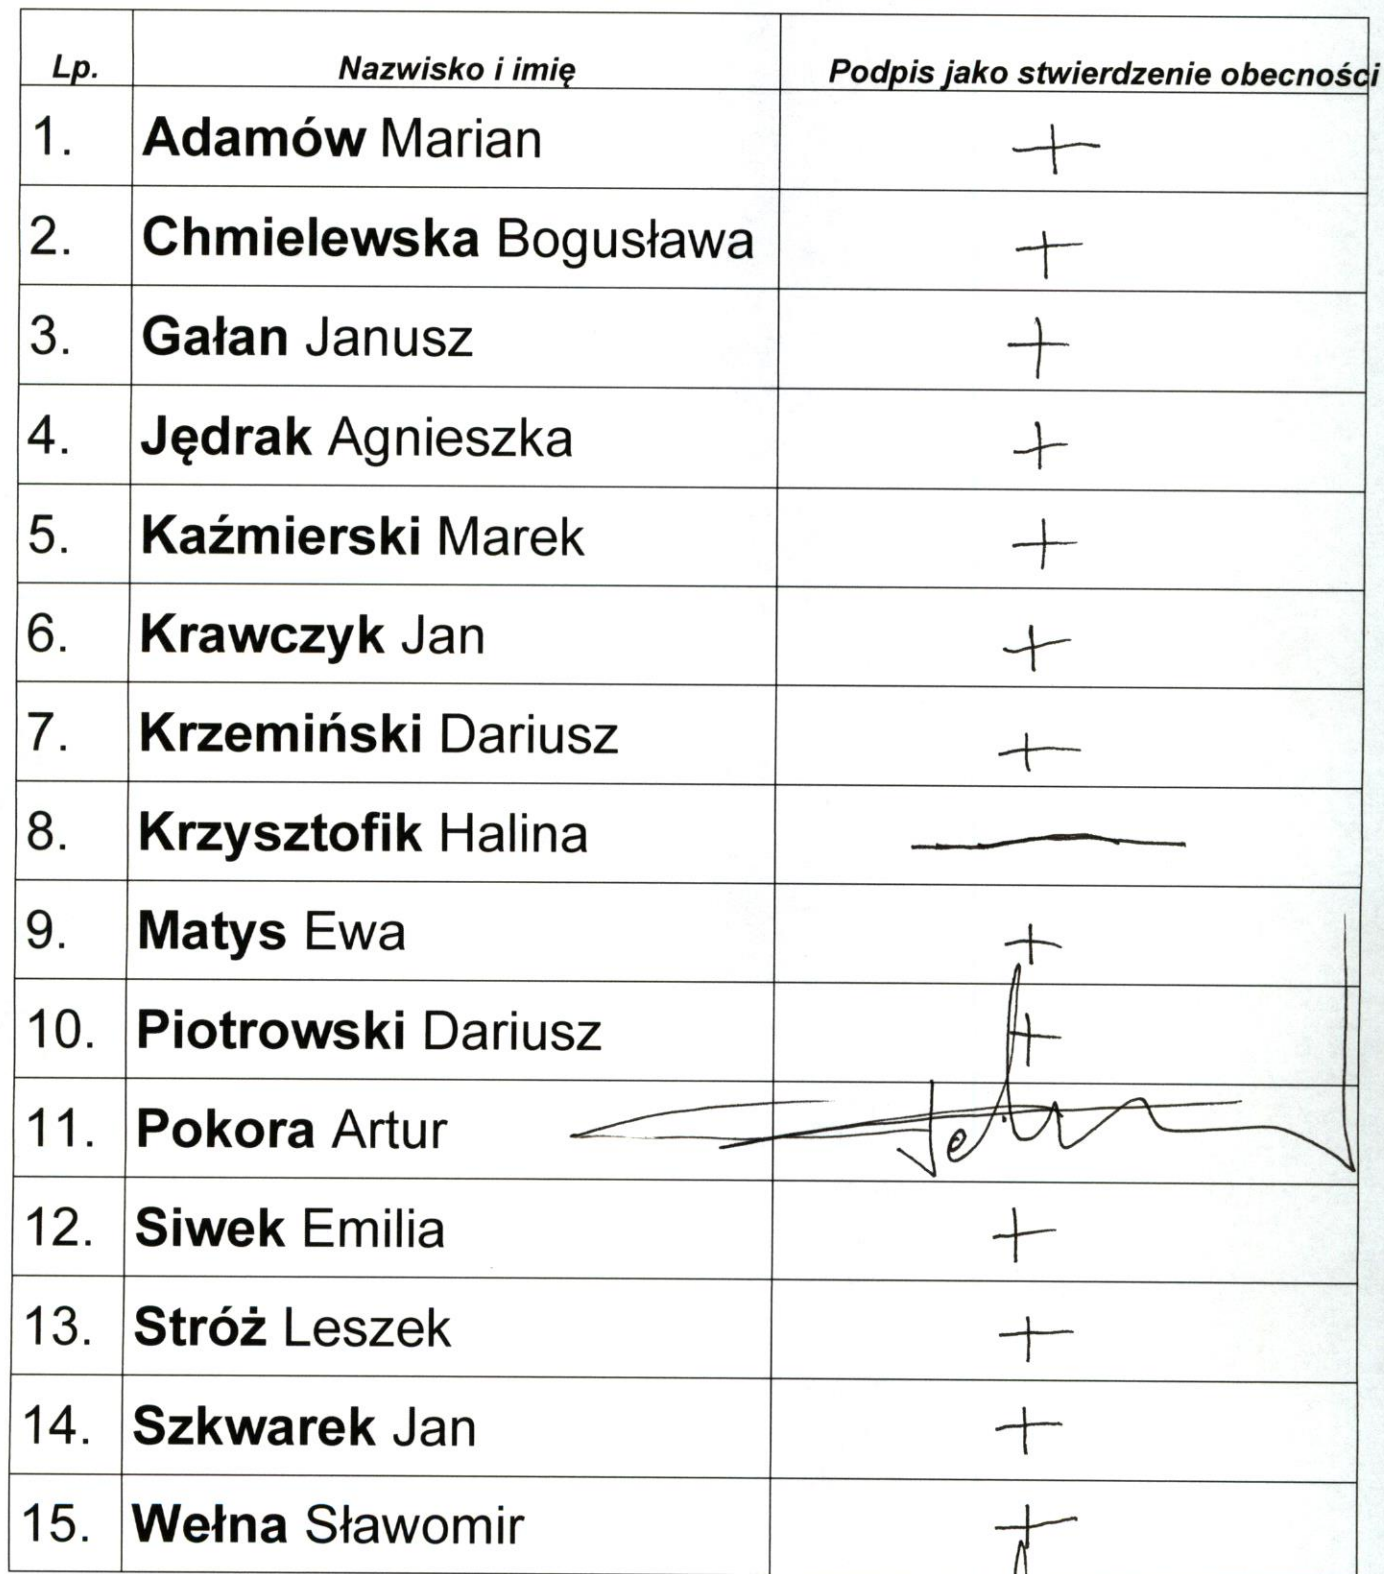 Lp. Nazwisko i imię Podpis jako stwierdzenie obecności
1. Adamów Marian +
2. Chmielewska Bogusława +
3. Gałan Janusz +
4. Jędrak Agnieszka +
5. Kaźmierski Marek +
6. Krawczyk Jan +
7. Krzemiński Dariusz +
8. Krzysztofik Halina —
9. Matys Ewa +
10. Piotrowski Dariusz +
11. Pokora Artur
12. Siwek Emilia +
13. Stróż Leszek +
14. Szkwarek Jan +
15. Wełna Sławomir +